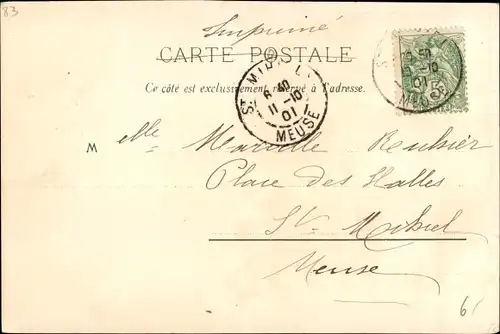 83
Imprimé
CARTE POSTALE
Ce côté est exclusivement réservé à l'adresse.
ST MIHIEL
6 40
11-10
01
MEUSE
10
01
MEUSE
5
Melle Marcelle
Place des Halles
St Mihiel
Meuse
6